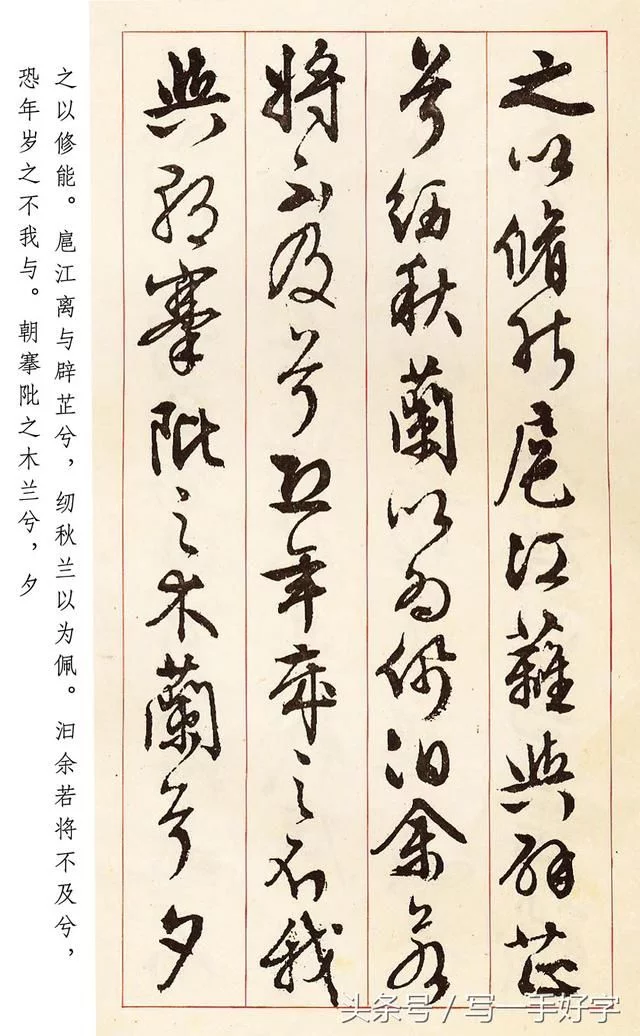 之以脩能扈江蘺與辟芷
兮紉秋蘭以為佩汩余若
將不及兮恐年歲之不我
與朝搴阰之木蘭兮夕
之以修能。扈江离与辟芷兮，纫秋兰以为佩。汩余若将不及兮，
恐年岁之不我与。朝搴阰之木兰兮，夕
头条号/写一手好字